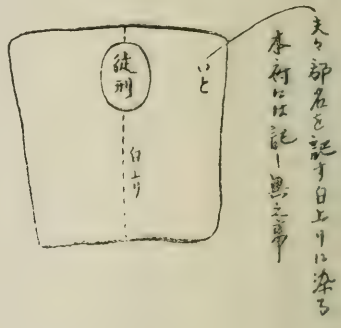 夫々部名を記す白上りに染る
本府には記し無之事
いと
徒刑
白上り